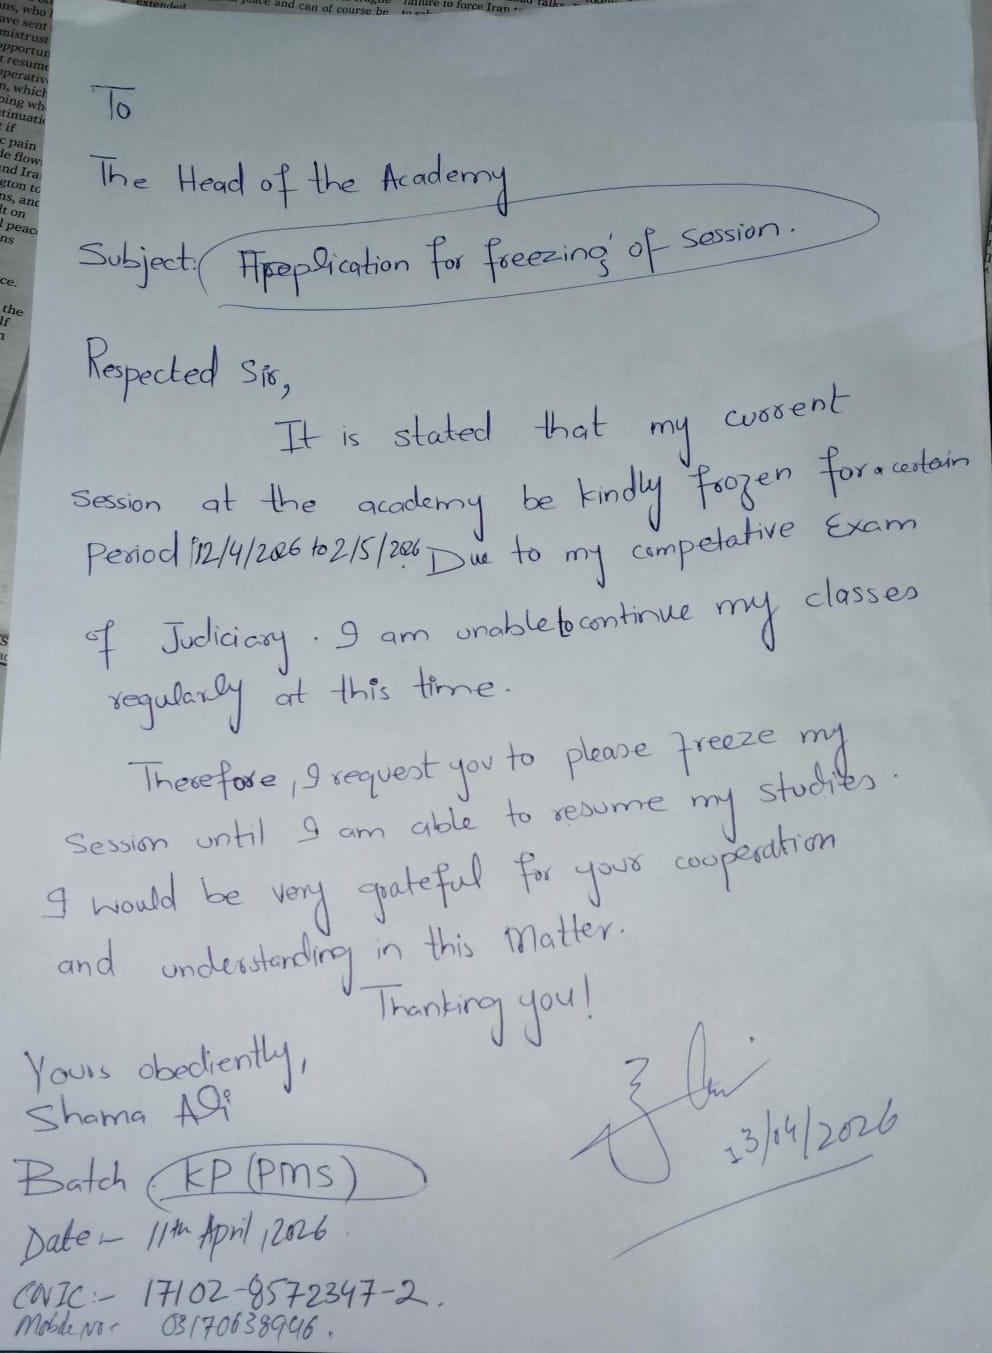 To
The Head of the Academy
Subject: Appplication for freezing of session.
Respected Sir,
It is stated that my current
session at the academy be kindly frozen for a certain
Period 12/4/2026 to 2/5/2026 Due to my competative Exam
of Judiciary. I am unable to continue my classes
regularly at this time.
Therefore, I request you to please freeze my
session until I am able to resume my studies.
I would be very grateful for your cooperation
and understanding in this Matter.
Thanking you!
Yours obediently,
Shama Ali
13/04/2026
Batch KP (PMS)
Date:- 11th April, 2026
CNIC:- 17102-8572347-2.
Mobile No:- 03170638946.